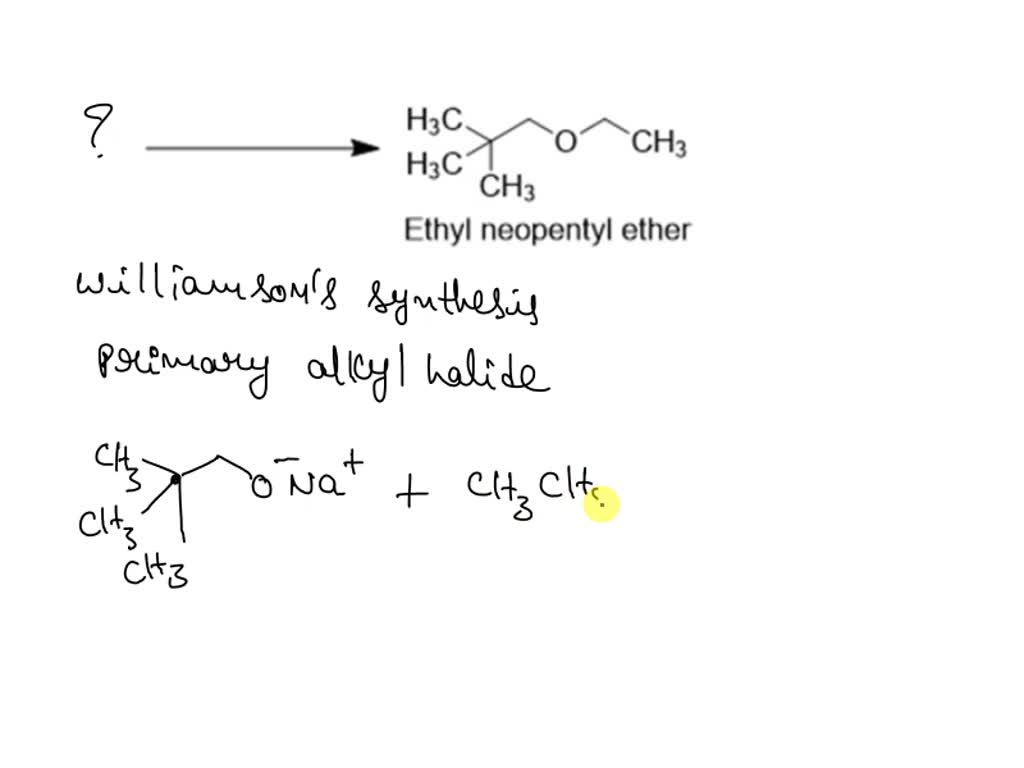 ?
H3C
O
CH3
H3C
CH3
Ethyl neopentyl ether
Williamson's synthesis
Primary alkyl halide
CH3
O⁻ Na⁺ + CH3 CH
CH3
CH3